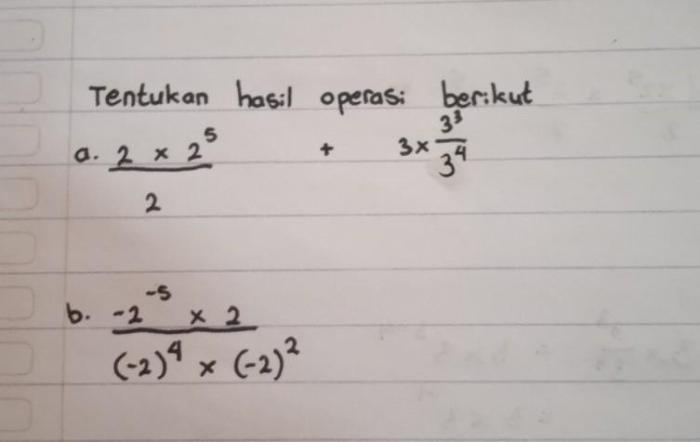 Tentukan hasil operasi berikut
a. (2 × 2⁵)/2 + 3 × 3³/3⁴
b. (-2⁻⁵ × 2)/((-2)⁴ × (-2)²)